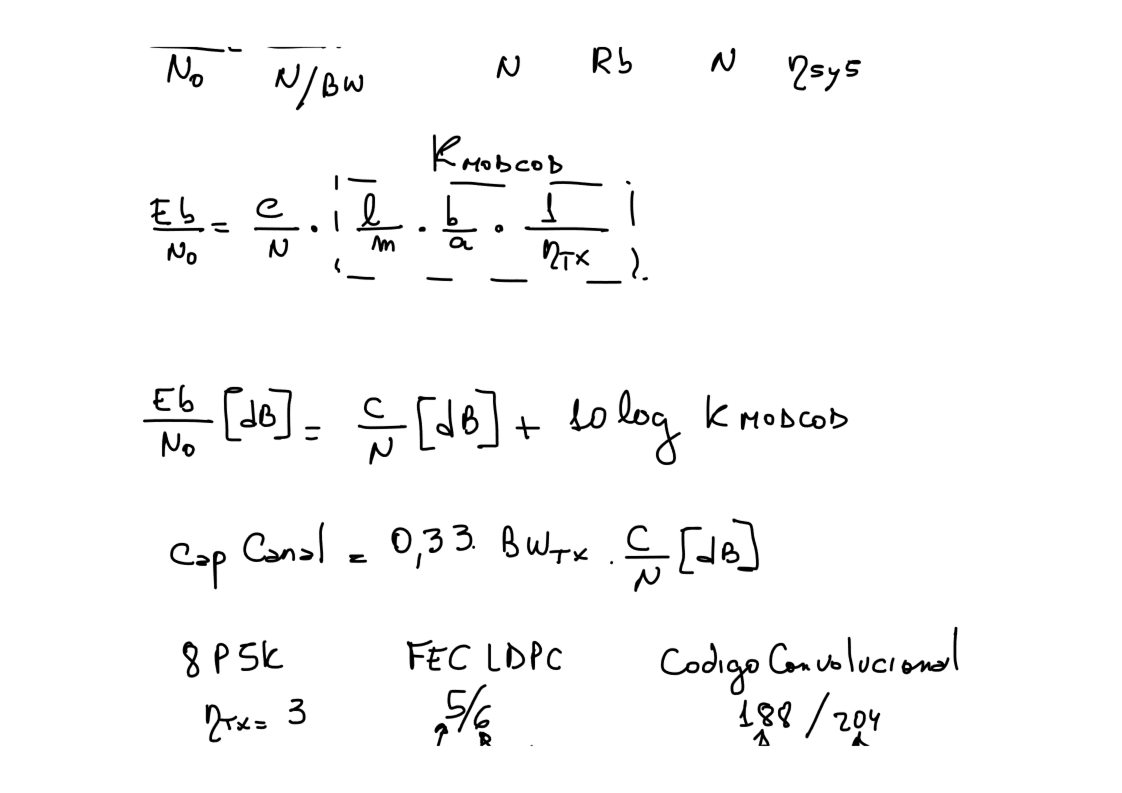 No N/BW N Rb N ηsys
KMODCOD
Eb/No = C/N · l/m · b/a · 1/ηTX
Eb/No [dB] = C/N [dB] + 10 log KMODCOD
Cap Canal = 0,33. BWTX . C/N [dB]
8PSK FEC LDPC Codigo Convolucional
ηTX= 3 5/6 188/204